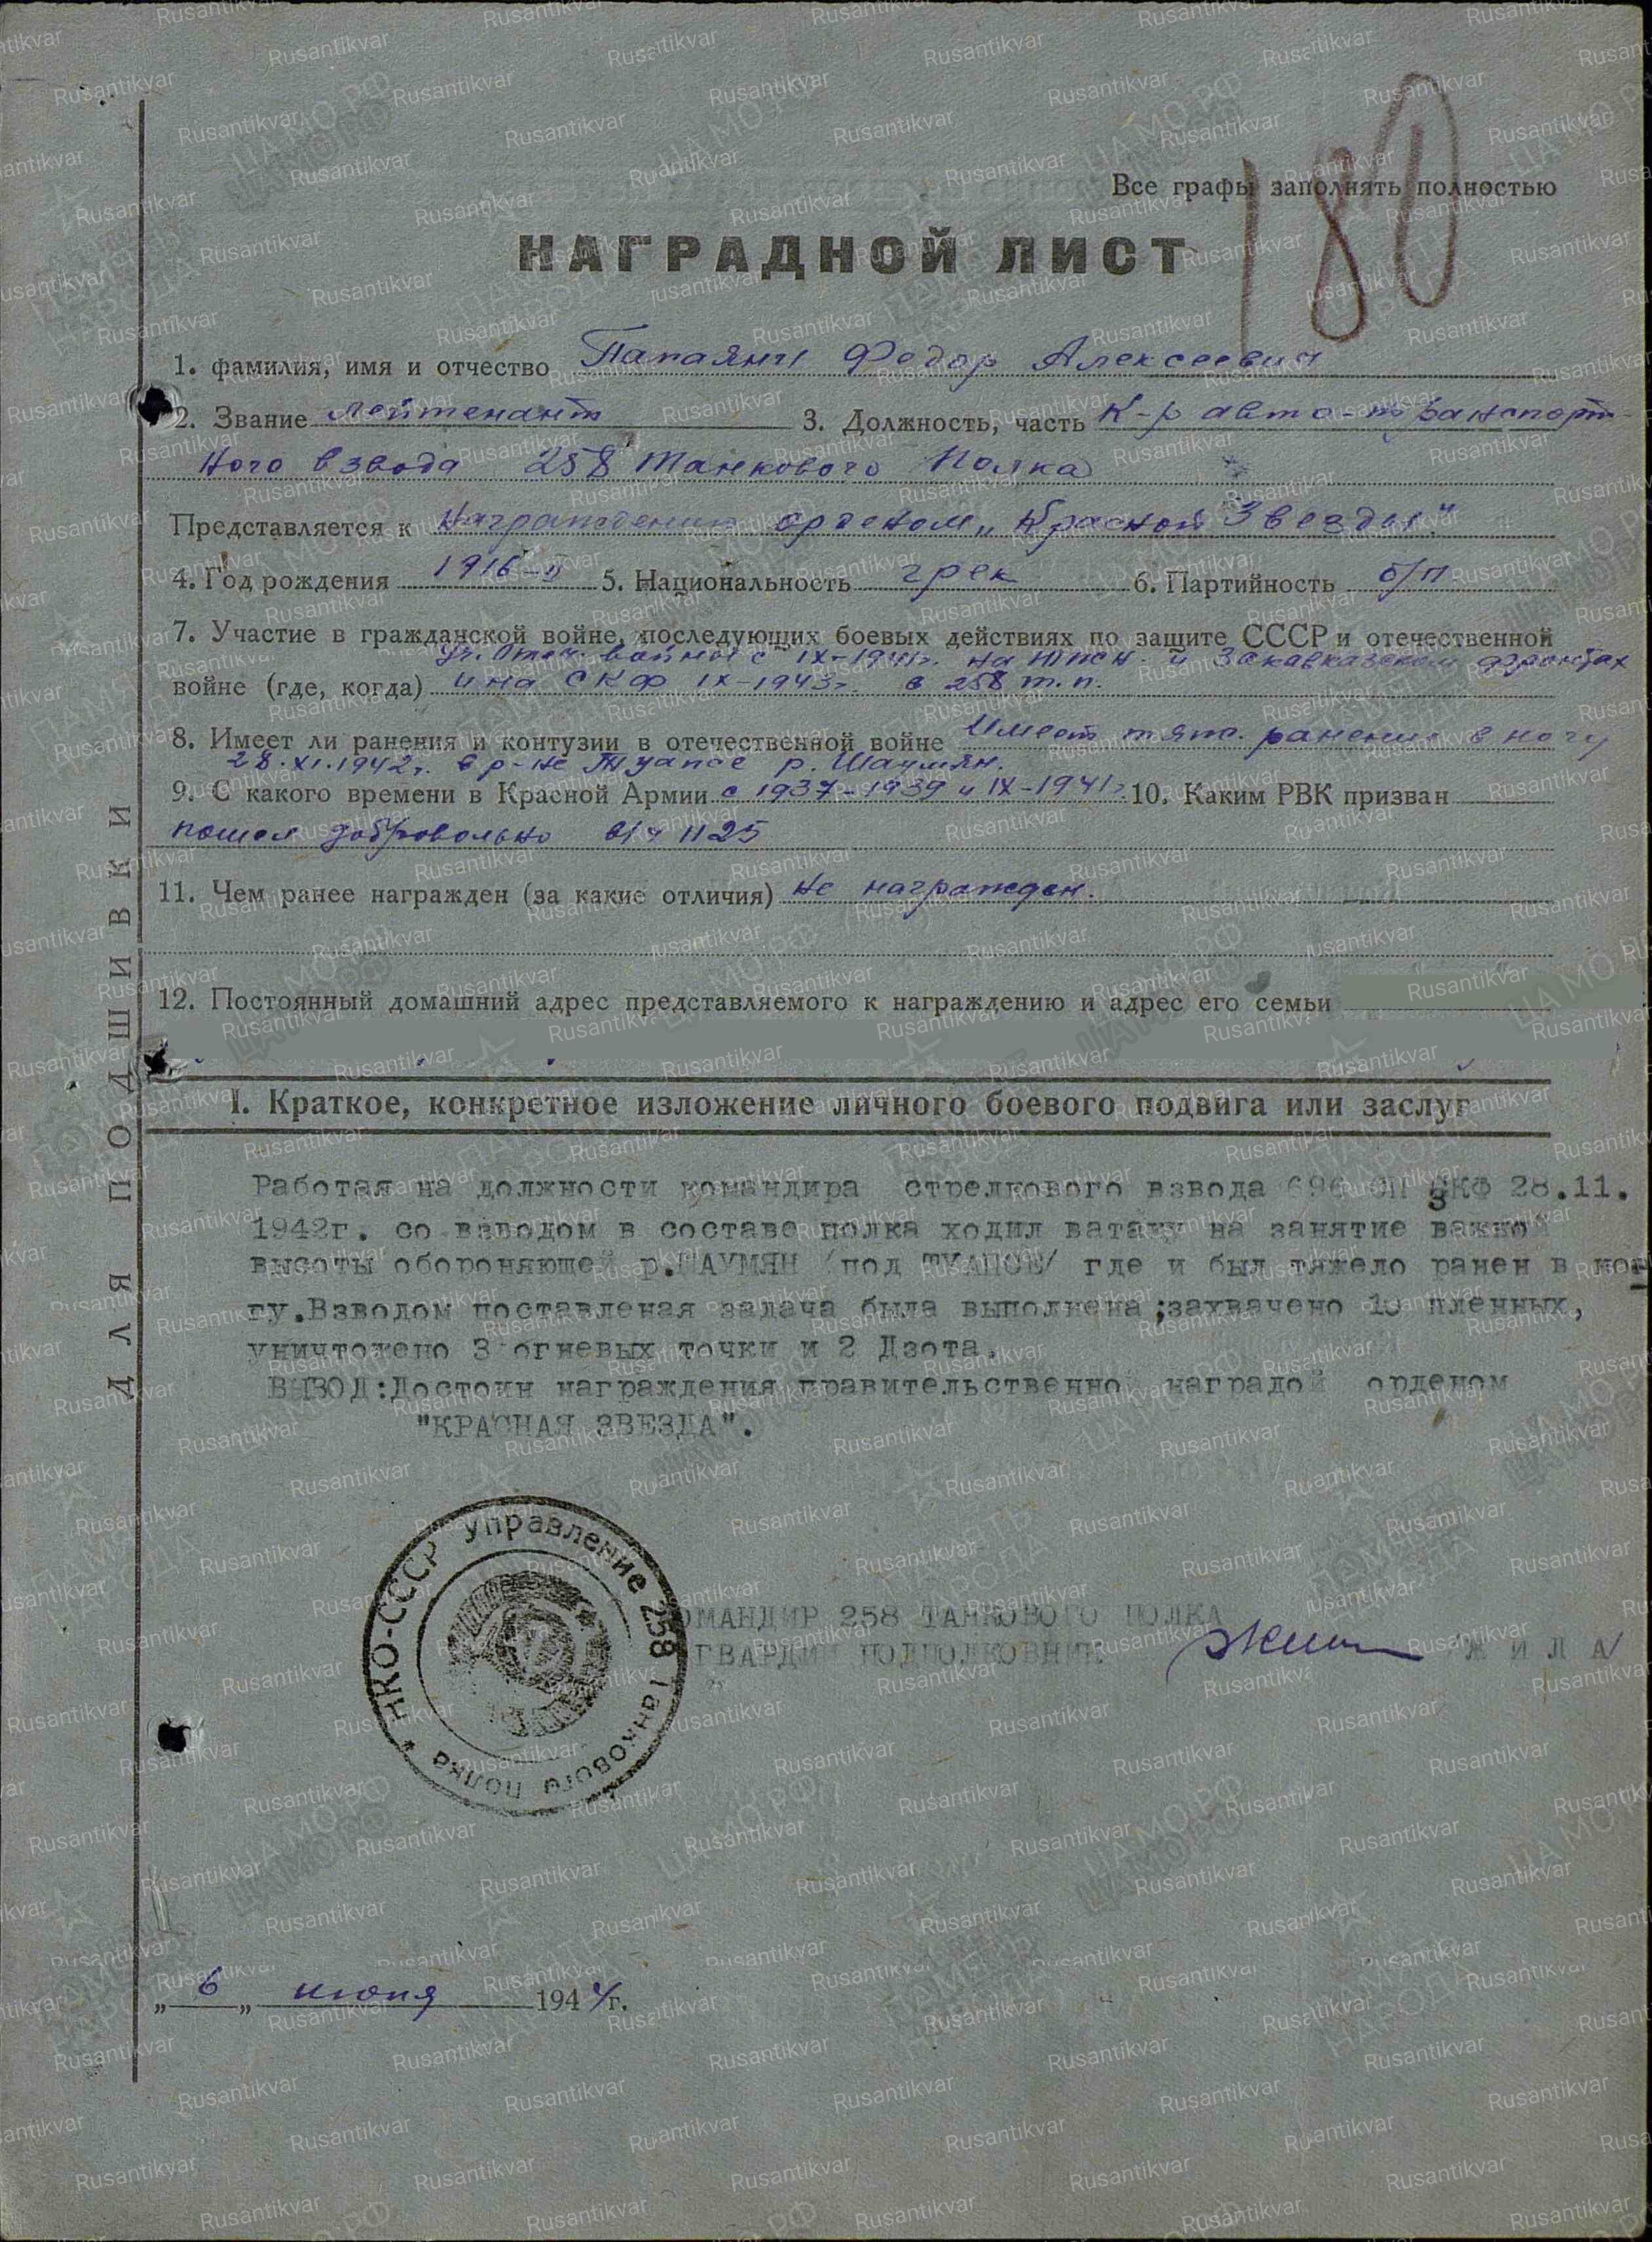 180
Все графы заполнять полностью
НАГРАДНОЙ ЛИСТ
1. фамилия, имя и отчество Папаянн Федор Алексеевич
2. Звание лейтенант 3. Должность, часть К-р авто-транспорт-
ного взвода 258 Танкового Полка
Представляется к награждению орденом „Красной Звезды".
4. Год рождения 1916 5. Национальность грек 6. Партийность б/п
7. Участие в гражданской войне, последующих боевых действиях по защите СССР и отечественной
уч. Отеч. войны с IX-1941г. на Южн. и Закавказском фронтах
войне (где, когда) и на СКФ IX-1943г. в 258 т.п.
8. Имеет ли ранения и контузии в отечественной войне Имеет тяж. ранение в ногу
28.XI.1942г. в р-не Туапсе р. Шаумян.
9. С какого времени в Красной Армии с 1937-1939 и IX-1941г. 10. Каким РВК призван
пошел добровольно в/ч 1125
11. Чем ранее награжден (за какие отличия) не награжден.
12. Постоянный домашний адрес представляемого к награждению и адрес его семьи
I. Краткое, конкретное изложение личного боевого подвига или заслуг
Работая на должности командира стрелкового взвода 696 СП ЗКФ 28.11.
1942г. со взводом в составе полка ходил ватаку на занятие важной
высоты обороняющей р.ШАУМЯН /под ТУАПСЕ/ где и был тяжело ранен в но-
гу.Взводом поставленая задача была выполнена;захвачено 10 пленных,
уничтожено 3 огневых точки и 2 Дзота.
ВЫВОД:Достоин награждения правительственной наградой орденом
"КРАСНАЯ ЗВЕЗДА".
НКО-СССР Управление 258 Танкового полка *
КОМАНДИР 258 ТАНКОВОГО ПОЛКА
ГВАРДИИ ПОДПОЛКОВНИК /Ж И Л А/
„ 6 „ июня 1944г.
ДЛЯ ПОДШИВКИ
Rusantikvar
ЦА МО РФ
ПАМЯТЬ НАРОДА